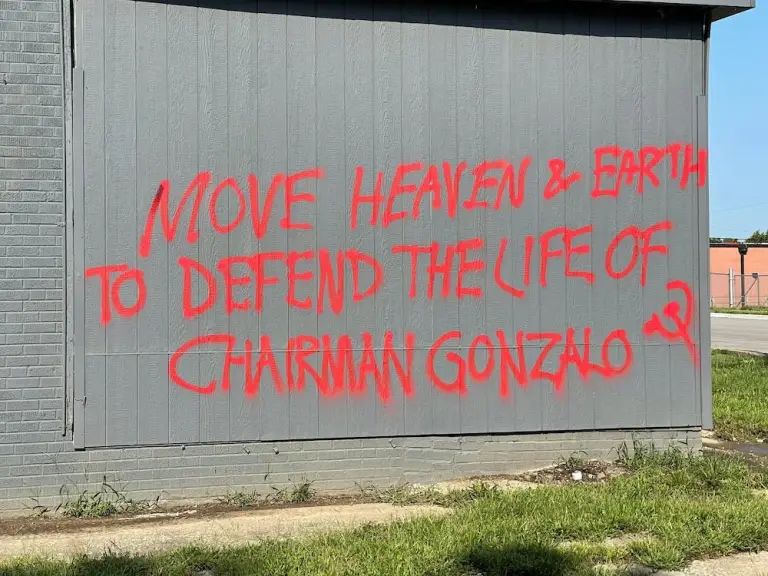 MOVE HEAVEN & EARTH
TO DEFEND THE LIFE OF
CHAIRMAN GONZALO